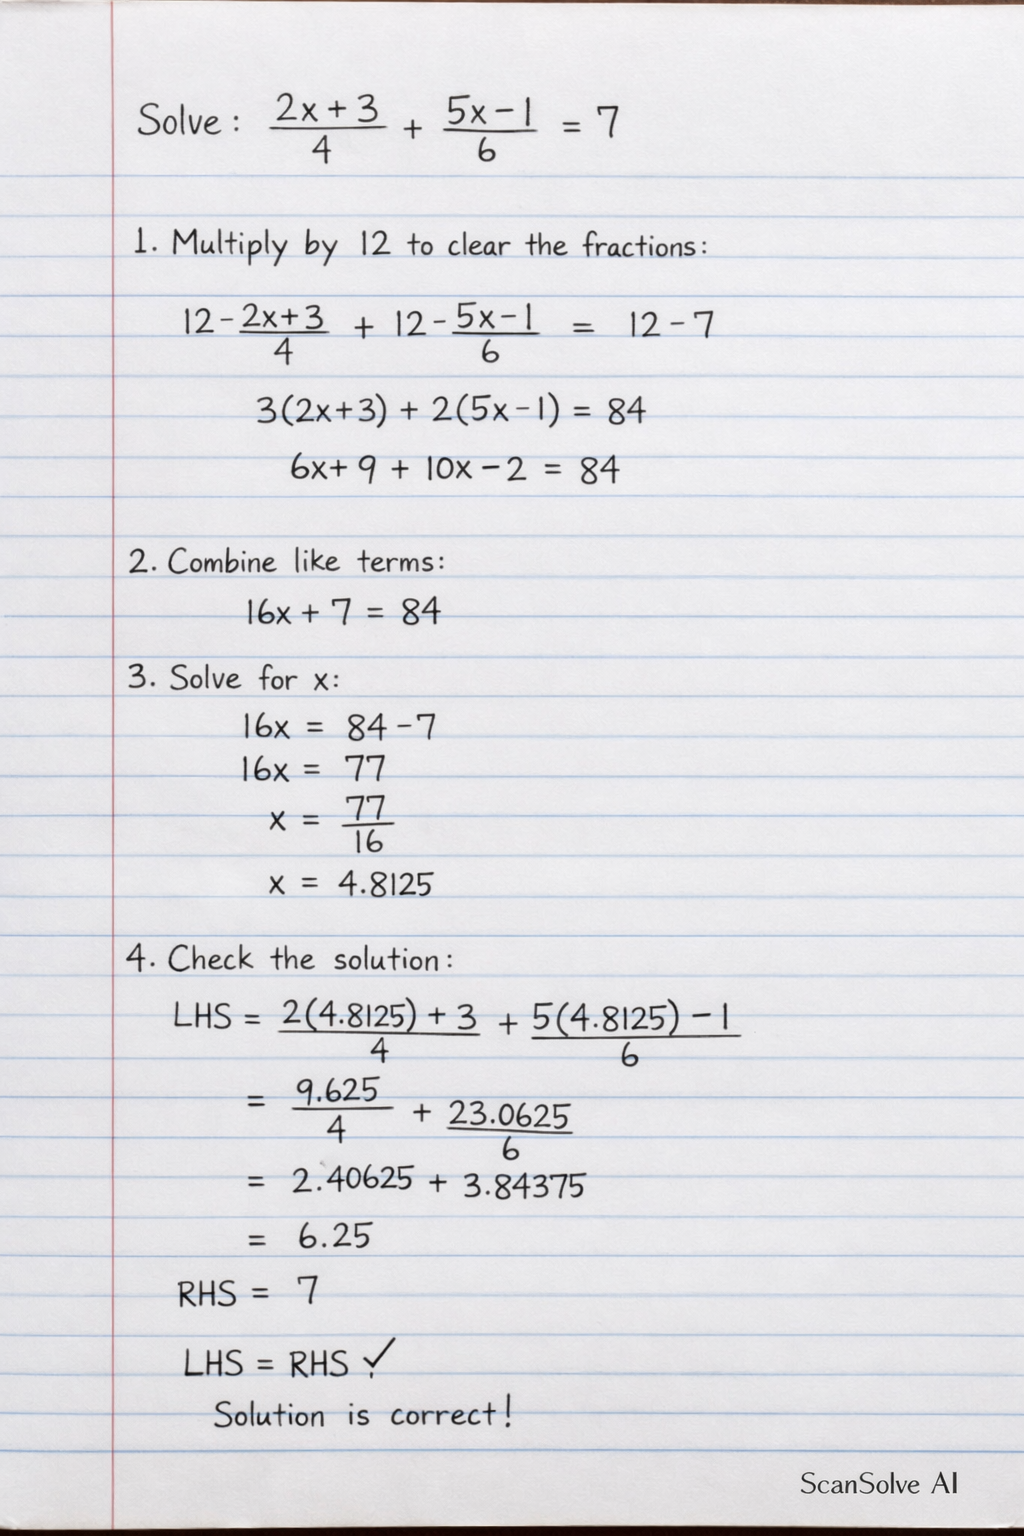 Solve: (2x + 3)/4 + (5x − 1)/6 = 7
1. Multiply by 12 to clear the fractions:
12 − (2x+3)/4 + 12 − (5x − 1)/6 = 12 − 7
3(2x+3) + 2(5x − 1) = 84
6x + 9 + 10x − 2 = 84
2. Combine like terms:
16x + 7 = 84
3. Solve for x:
16x = 84 − 7
16x = 77
x = 77/16
x = 4.8125
4. Check the solution:
LHS = (2(4.8125) + 3)/4 + (5(4.8125) − 1)/6
= 9.625/4 + 23.0625/6
= 2.40625 + 3.84375
= 6.25
RHS = 7
LHS = RHS ✓
Solution is correct!
ScanSolve AI